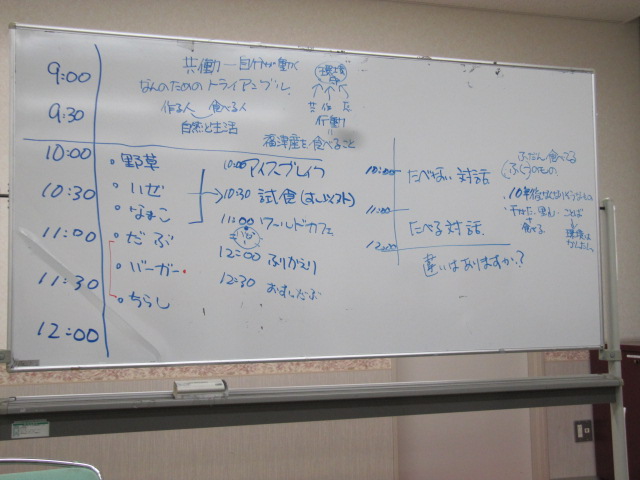 9:00
9:30
10:00
10:30
11:00
11:30
12:00
共働 — 自分が働く
なんのためのトライアングル
作る人 食べる人
自然と生活
環境
行動
福津産を食べること
・野草
・いぜ
・なまこ
・だぶ
・バーガー
・ちらし
10:00 アイスブレイク
10:30 試食
11:00 ワールドカフェ
12:00 ふりかえり
12:30 おすし だぶ
10:00
11:00
12:00
たべない対話
たべる対話
違いはありますか?
ふだん食べてる
ふくつのもの
・10年後
ことば
食べる
環境は